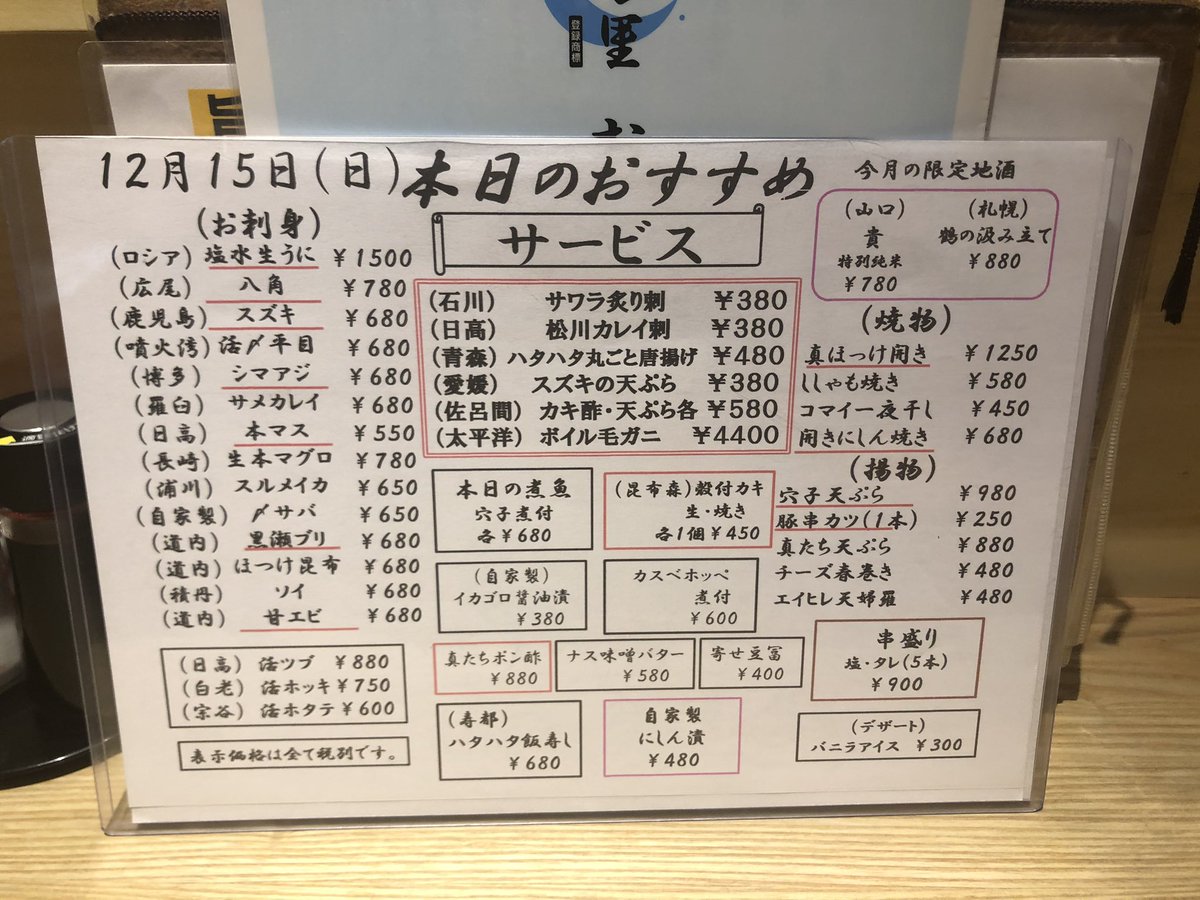 里
登録商標
お
旨
12月15日(日)
本日のおすすめ
(お刺身)
(ロシア) 塩水生うに ¥1500
(広尾) 八角 ¥780
(鹿児島) スズキ ¥680
(噴火湾) 活〆平目 ¥680
(博多) シマアジ ¥680
(羅臼) サメカレイ ¥680
(日高) 本マス ¥550
(長崎) 生本マグロ ¥780
(浦川) スルメイカ ¥650
(自家製) 〆サバ ¥650
(道内) 黒瀬ブリ ¥680
(道内) ほっけ昆布 ¥680
(積丹) ソイ ¥680
(道内) 甘エビ ¥680
(日高) 活ツブ ¥880
(白老) 活ホッキ ¥750
(宗谷) 活ホタテ ¥600
表示価格は全て税別です。
サービス
(石川) サワラ炙り刺 ¥380
(日高) 松川カレイ刺 ¥380
(青森) ハタハタ丸ごと唐揚げ ¥480
(愛媛) スズキの天ぷら ¥380
(佐呂間) カキ酢・天ぷら各 ¥580
(太平洋) ボイル毛ガニ ¥4400
本日の煮魚
穴子煮付
各¥680
(昆布森)殻付カキ
生・焼き
各1個¥450
(自家製)
イカゴロ醤油漬
¥380
カスベホッペ
煮付
¥600
真たちポン酢
¥880
ナス味噌バター
¥580
寄せ豆冨
¥400
(寿都)
ハタハタ飯寿し
¥680
自家製
にしん漬
¥480
今月の限定地酒
(山口)
貴
特別純米
¥780
(札幌)
鶴の汲み立て
¥880
(焼物)
真ほっけ開き ¥1250
ししゃも焼き ¥580
コマイ一夜干し ¥450
開きにしん焼き ¥680
(揚物)
穴子天ぷら ¥980
豚串カツ(1本) ¥250
真たち天ぷら ¥880
チーズ春巻き ¥480
エイヒレ天婦羅 ¥480
串盛り
塩・タレ(5本)
¥900
(デザート)
バニラアイス ¥300